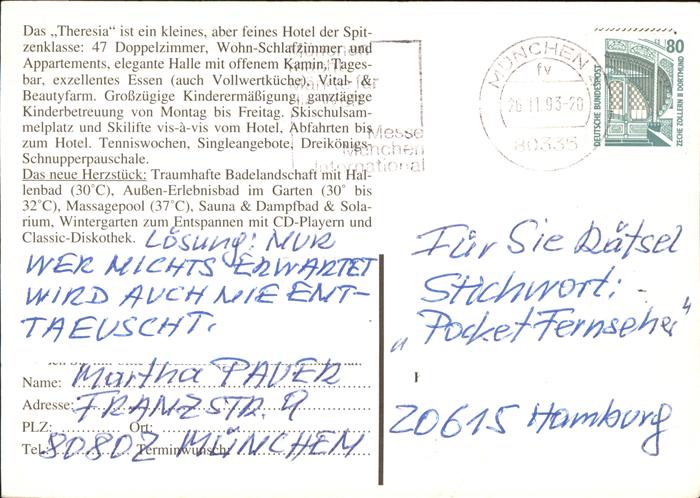 Das „Theresia" ist ein kleines, aber feines Hotel der Spit-
zenklasse: 47 Doppelzimmer, Wohn-Schlafzimmer und
Appartements, elegante Halle mit offenem Kamin, Tages-
bar, exzellentes Essen (auch Vollwertküche), Vital- &
Beautyfarm. Großzügige Kinderermäßigung, ganztägige
Kinderbetreuung von Montag bis Freitag. Skischulsam-
melplatz und Skilifte vis-à-vis vom Hotel, Abfahrten bis
zum Hotel. Tenniswochen, Singleangebote, Dreikönigs-
Schnupperpauschale.
Das neue Herzstück: Traumhafte Badelandschaft mit Hal-
lenbad (30°C), Außen-Erlebnisbad im Garten (30° bis
32°C), Massagepool (37°C), Sauna & Dampfbad & Sola-
rium, Wintergarten zum Entspannen mit CD-Playern und
Classic-Diskothek. Lösung: NUR
WER NICHTS ERWARTET
WIRD AUCH NIE ENT-
TAEUSCHT.
Name: Martha PAUER
Adresse: FRANZSTR. 9
PLZ: Ort:
Tel. 80802 MÜNCHEN Terminwunsch:
für
Messe
München
International
MÜNCHEN
fv
26.11.93-20
80335
80
DEUTSCHE BUNDESPOST
ZECHE ZOLLERN II DORTMUND
Für Sie Rätsel
Stichwort:
„Pocket Fernseher"
20615 Hamburg